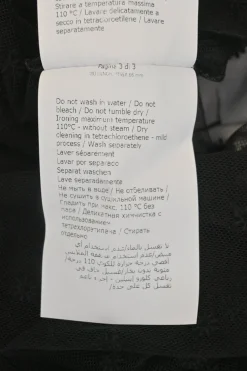 Stirare a temperatura massima
110 °C / Lavare delicatamente a
secco in tetracloroetilene / Lavare
separatamente
Pagina 3 di 3
Do not wash in water / Do not
bleach / Do not tumble dry /
Ironing maximum temperature
110°C - without steam / Dry
cleaning in tetrachloroethene - mild
process / Wash separately
Laver séparément
Lavar por separado
Separat waschen
Lave separadamente
Не мыть в воде / Не отбеливать /
Не сушить в сушильной машине /
Гладить при макс. 110 °C без
пара / Деликатная химчистка с
использованием
тетрахлорэтилена / Стирать
отдельно
لا تغسل بالماء/عدم استخدام أي
مبيض/عدم استخدام مجففة الملابس
/أقصى درجة حرارة للكي 110 درجة
مئوية بدون بخار/تنظيف جاف في